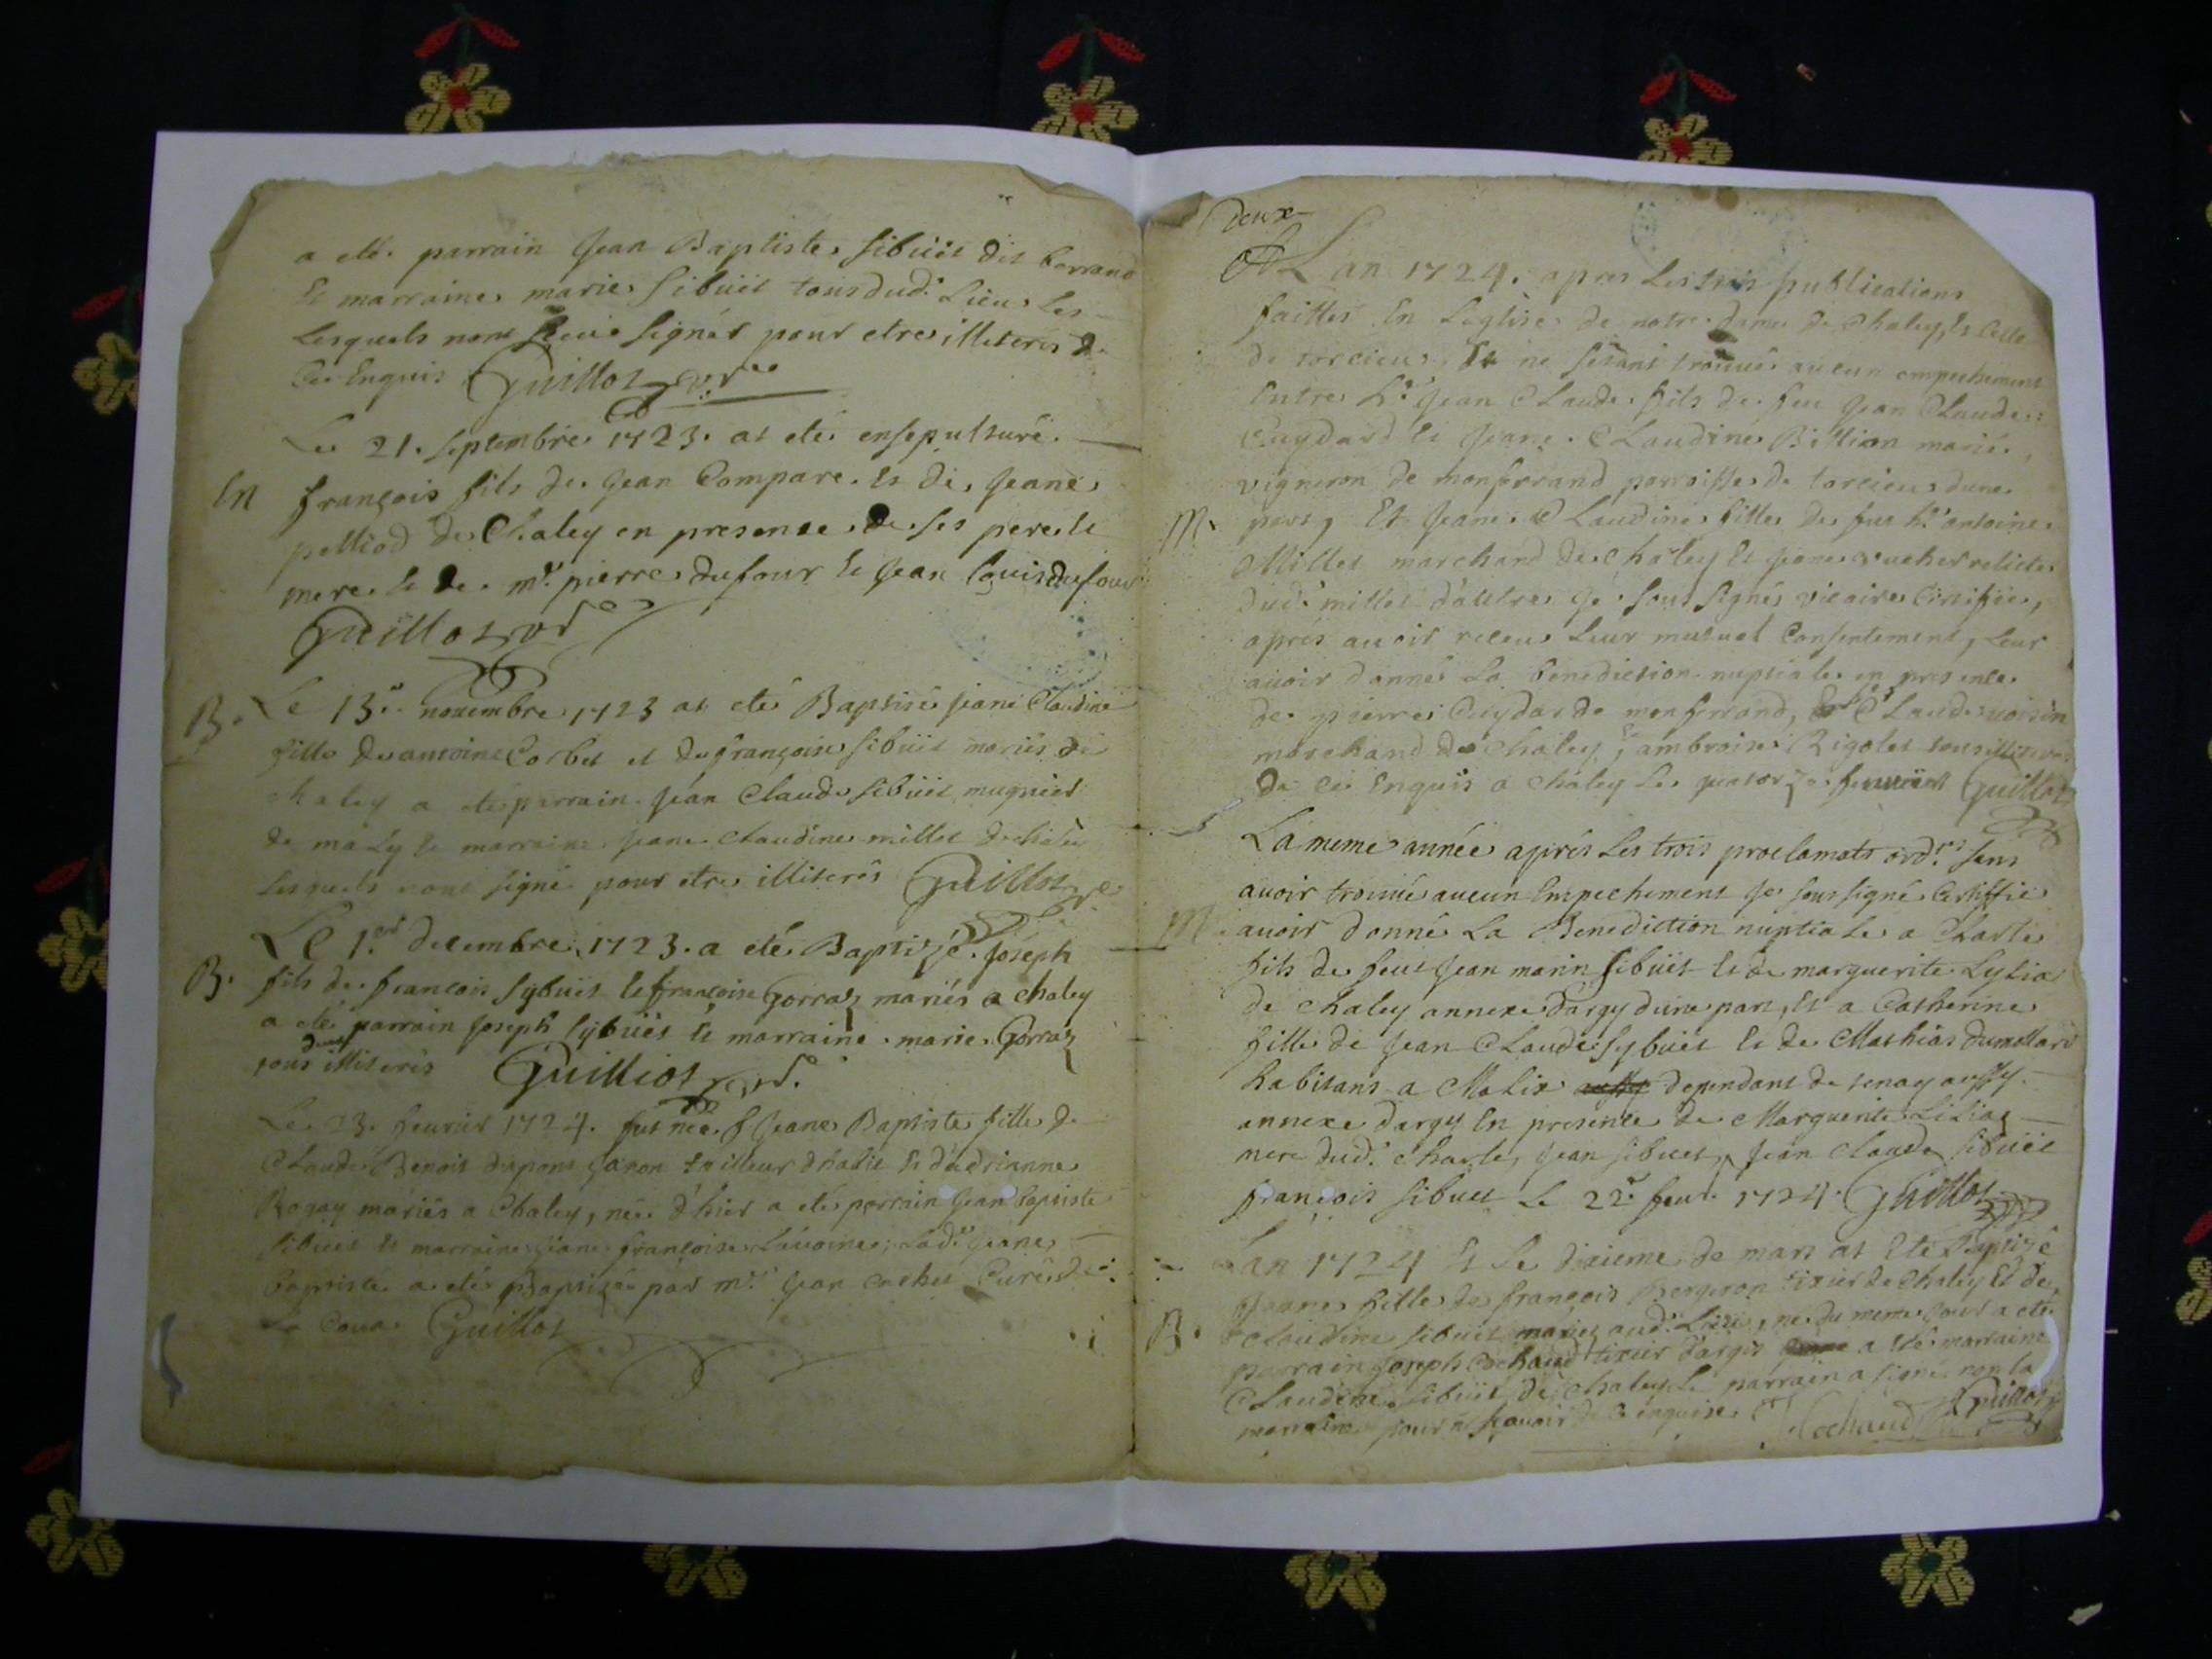 a eté parrain Jean Baptiste sibuët dit
Et marraine marie sibuët tous dud. Lieu Les
Lesquels nont sceu signér pour etre illiterés de
Ce Enquis Guillot
Le 21. septembre 1723. at eté ensepulturé
En françois fils de Jean Compare Et de Jeane
pelliod de Chaley en presence de ses pere et
mere et de mr. pierre dufour Et Jean Louis dufour
Guillot
B. Le 13e. nouembre 1723 at eté Baptisé Jeane Claudine
fille de antoine Corbet et de françoise sibuët mariés de
chaley a eté parrain Jean Claude sibuët mugnier
de maly Et marraine Jeane Claudine millet de
Lesquels nont signé pour etre illiterés Guillot
Le 1.er decembre 1723. a eté Baptizé Joseph
B. fils de françois sybuët et françoise Gorraz mariés a chaley
a eté parrain Joseph sybuët Et marraine marie Gorraz
tous deux illiterés Guilliot
Le 23. feurier 1724. fut née Jeane Baptiste fille de
Claude Benoit dupont garon tailleur dhabit Et dadrianne
Rogay mariés a Chaley, née d'hier a eté parrain Jean baptiste
sibuet Et marraine Jeane françoise Lad. Jeane
baptiste a eté Baptizée par mr. Jean Curé de
La Guillot
Deux
L'an 1724. apres Les trois publications
faittes En Leglise de notre dame de Chaley, Et Celle
de torcieu, Et ne sétant trouué aucun empechement
Entre hr. Jean Claude fils de feu Jean Claude
Cuydard Et Jeane Claudine Billion mariés,
vigneron de monferrand parroisse de torcieu dune
M. part, Et Jeane Claudine fille de feu hr. antoine
Millet marchand de Chaley Et Jeane relicte
dud. millet d'autre Je sous signé vicaire Certifie,
aprés auoir receu Leur mutuel Consentement, Leur
auoir donné La benediction nuptiale en presence
de pierre Cuydard de monferrand, Claude uoisin
marchand de Chaley, Et ambroise Rigolet tous illiterés
de ce Enquis a Chaley Le quatorze feurier Guillot
La meme année aprés Les trois proclamats ord.res sans
auoir trouué aucun Empechement Je soussigné Certiffie
M. auoir donné La Benediction nuptiale a Charle
fils de feu Jean marin sibuët Et de marguerite Lyliaz
de Chaley annexe d'argy dune part, Et a Catherine
fille de Jean Claude sybuët Et de Mathias dumollard
habitans a Malix dependant de tenay aussy
annexe dargy En presence de Marguerite Liliaz
mere dud. Charle, Jean sibuet, Jean Claude sibuët
françois sibuet Le 22e feur. 1724. Guillot
Lan 1724 Et Le dixieme de mars at Eté Baptizé
Jeane fille de françois Bergeron tixier de Chaley Et de
B. Claudine sibuet mariez aud. Lieu, né du meme jour a eté
parrain Joseph Cochaud tixier d'argis a Eté marraine
Claudine sibuët de Chaley Le parrain a signé non la
marraine pour ne sçauoir de ce enquise Cochaud Guillot